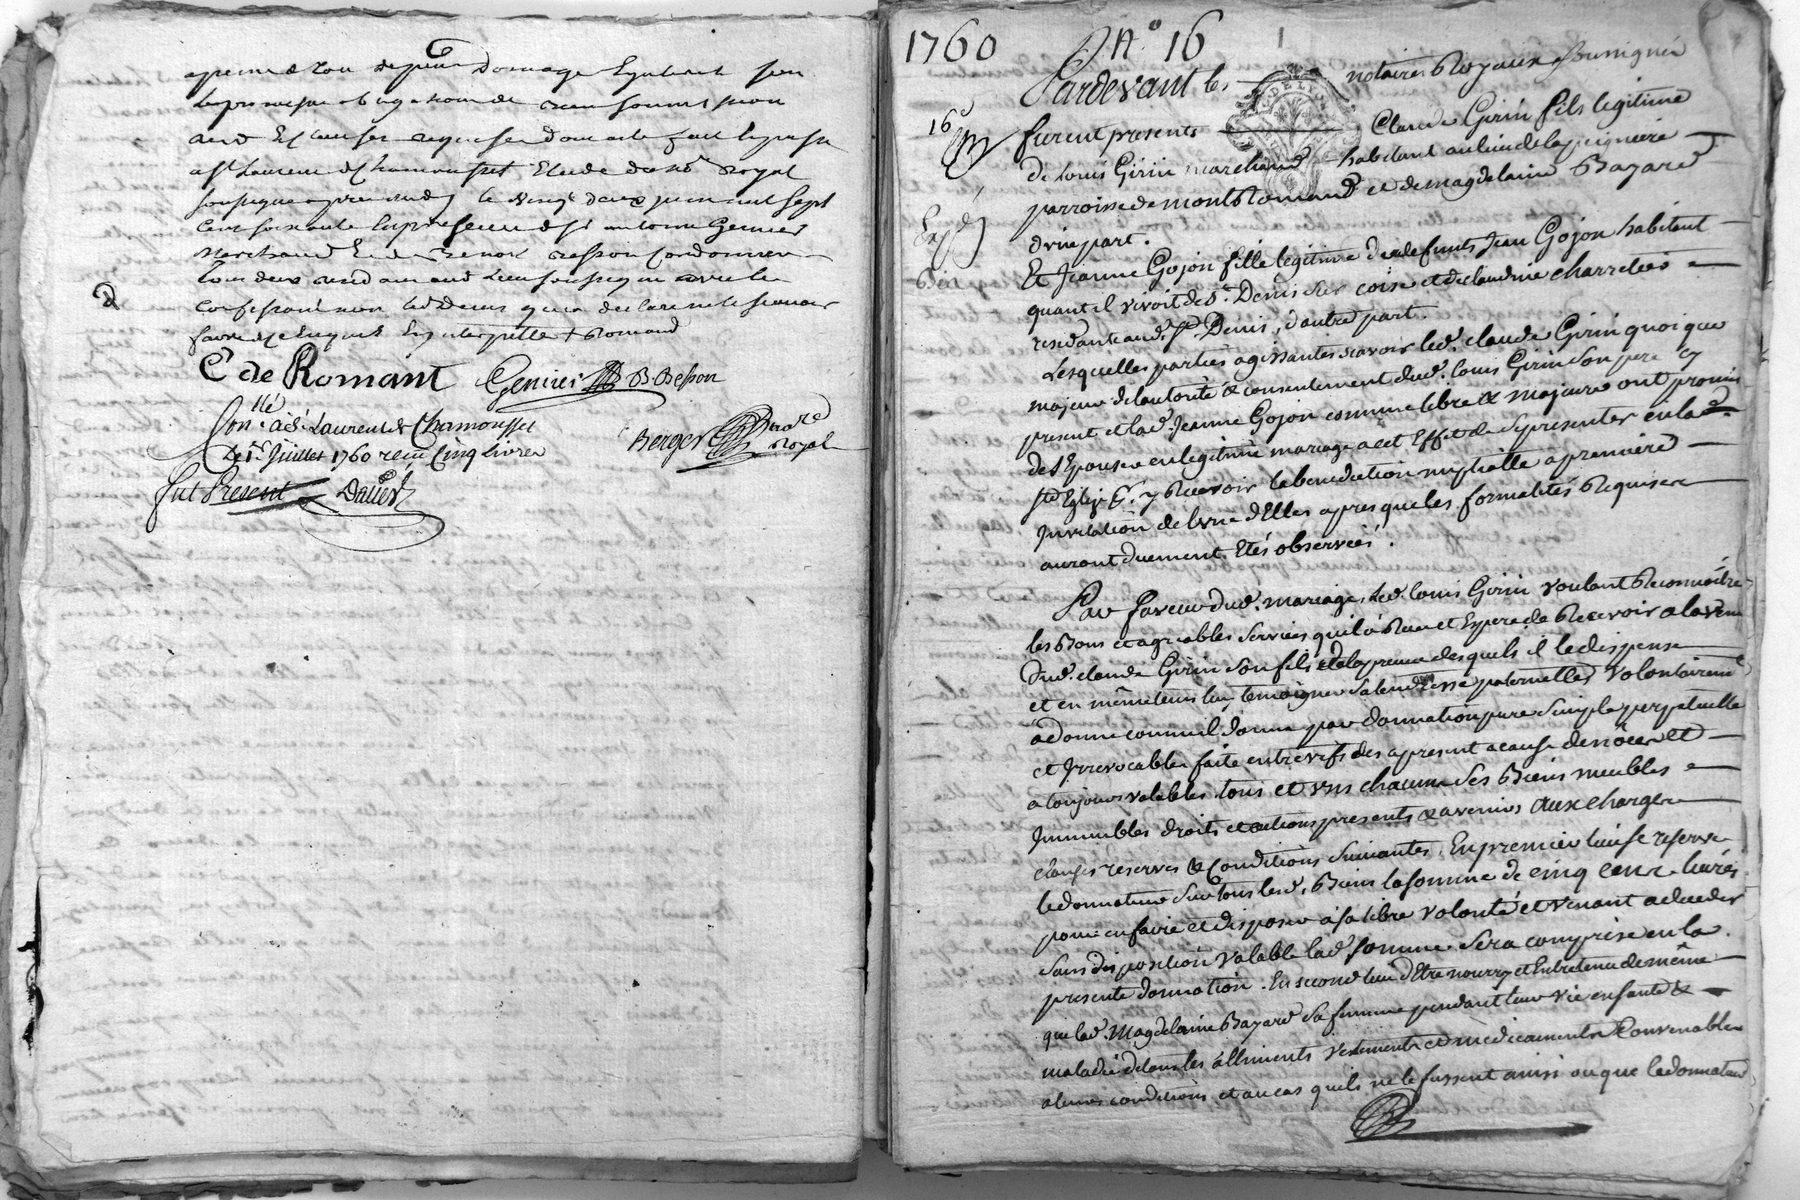 a peine de tou depens Domage Interest Sou
les promesse obligation de
aud Et clauses
a St Laurent de Chamousset Etude dud no.re Royal
soussigné apres midy le vingt deux juin mil sept
cent soixante En presence de Sr antoine Genier
Marchand Et de Benoit Besson Cordonnier
tous deux aud
non led Denis qui a declaré ne le scavoir
faire de ce Enquis Romand
C de Romant Genier B Besson
Con.llé à St Laurent de Chamousset
Le 1er Juillet 1760 reçu Cinq Livres
Berger no.re Royal
fut Present Dalier
1760 No 16
Pardevant les notaires Royaux soussignés
16e furent presents Claude Girin fils legitime
de Louis Girin marchand habitant au lieu de la peigniere
parroisse de montRomand et de magdelaine Bayard
d'une part.
Expd
Et Jeanne Gojon fille legitime de defunts Jean Gojon habitant
quant il vivoit de St. Denis sur coise et de claudine charretier
residante aud. St. Denis, d'autre part.
Lesquelles parties agissantes scavoir led. claude Girin quoi que
majeur de lautorité & consentement dud. Louis Girin son pere cy
present et lad. Jeanne Gojon comme libre & majeure ont promis
de s'Epouser en legitime mariage a cet Effet de se presenter en la
Ste Eglise Et. y Recevoir la benediction nuptialle a premiere
Invitation de l'une d'Elles apres que les formalités Requises
auront duement Etés observéés.
En faveur dud. mariage, Led. Louis Girin voulant Reconnoitre
les Bons et agreables services qu'il à Recu et Espere de Recevoir a lavenir
dud. claude Girin son fils de la preuve desquels il le dispense
et en même tems luy temoigner sa tendresse paternelle, volontairemt
à donné comme il donne par donnation pure simple perpetuelle
et Irrevocable faite entre vifs des apresent a cause de nôces et
a toujours valable, tous et uns chacuns ses Biens meubles
Immeubles droits et actions presents & avenirs Aux charges
clauses reserves & Conditions suivantes, En premier lieu se reserve
le donnateur sur tous lesd. Biens la somme de cinq cent livres
pour en faire et disposer à sa libre volonté et venant a deceder
sans disposition valable lad. somme sera comprise en la
presente donnation. En second lieu d'Etre nourry et Entretenu de même
que lad. Magdelaine Bayard sa femme pendant leur vie en santé &
maladie de tous les alliments vetements et medicaments Convenables
a leurs conditions et au cas qu'ils ne le fussent ainsi ou que le donnateur